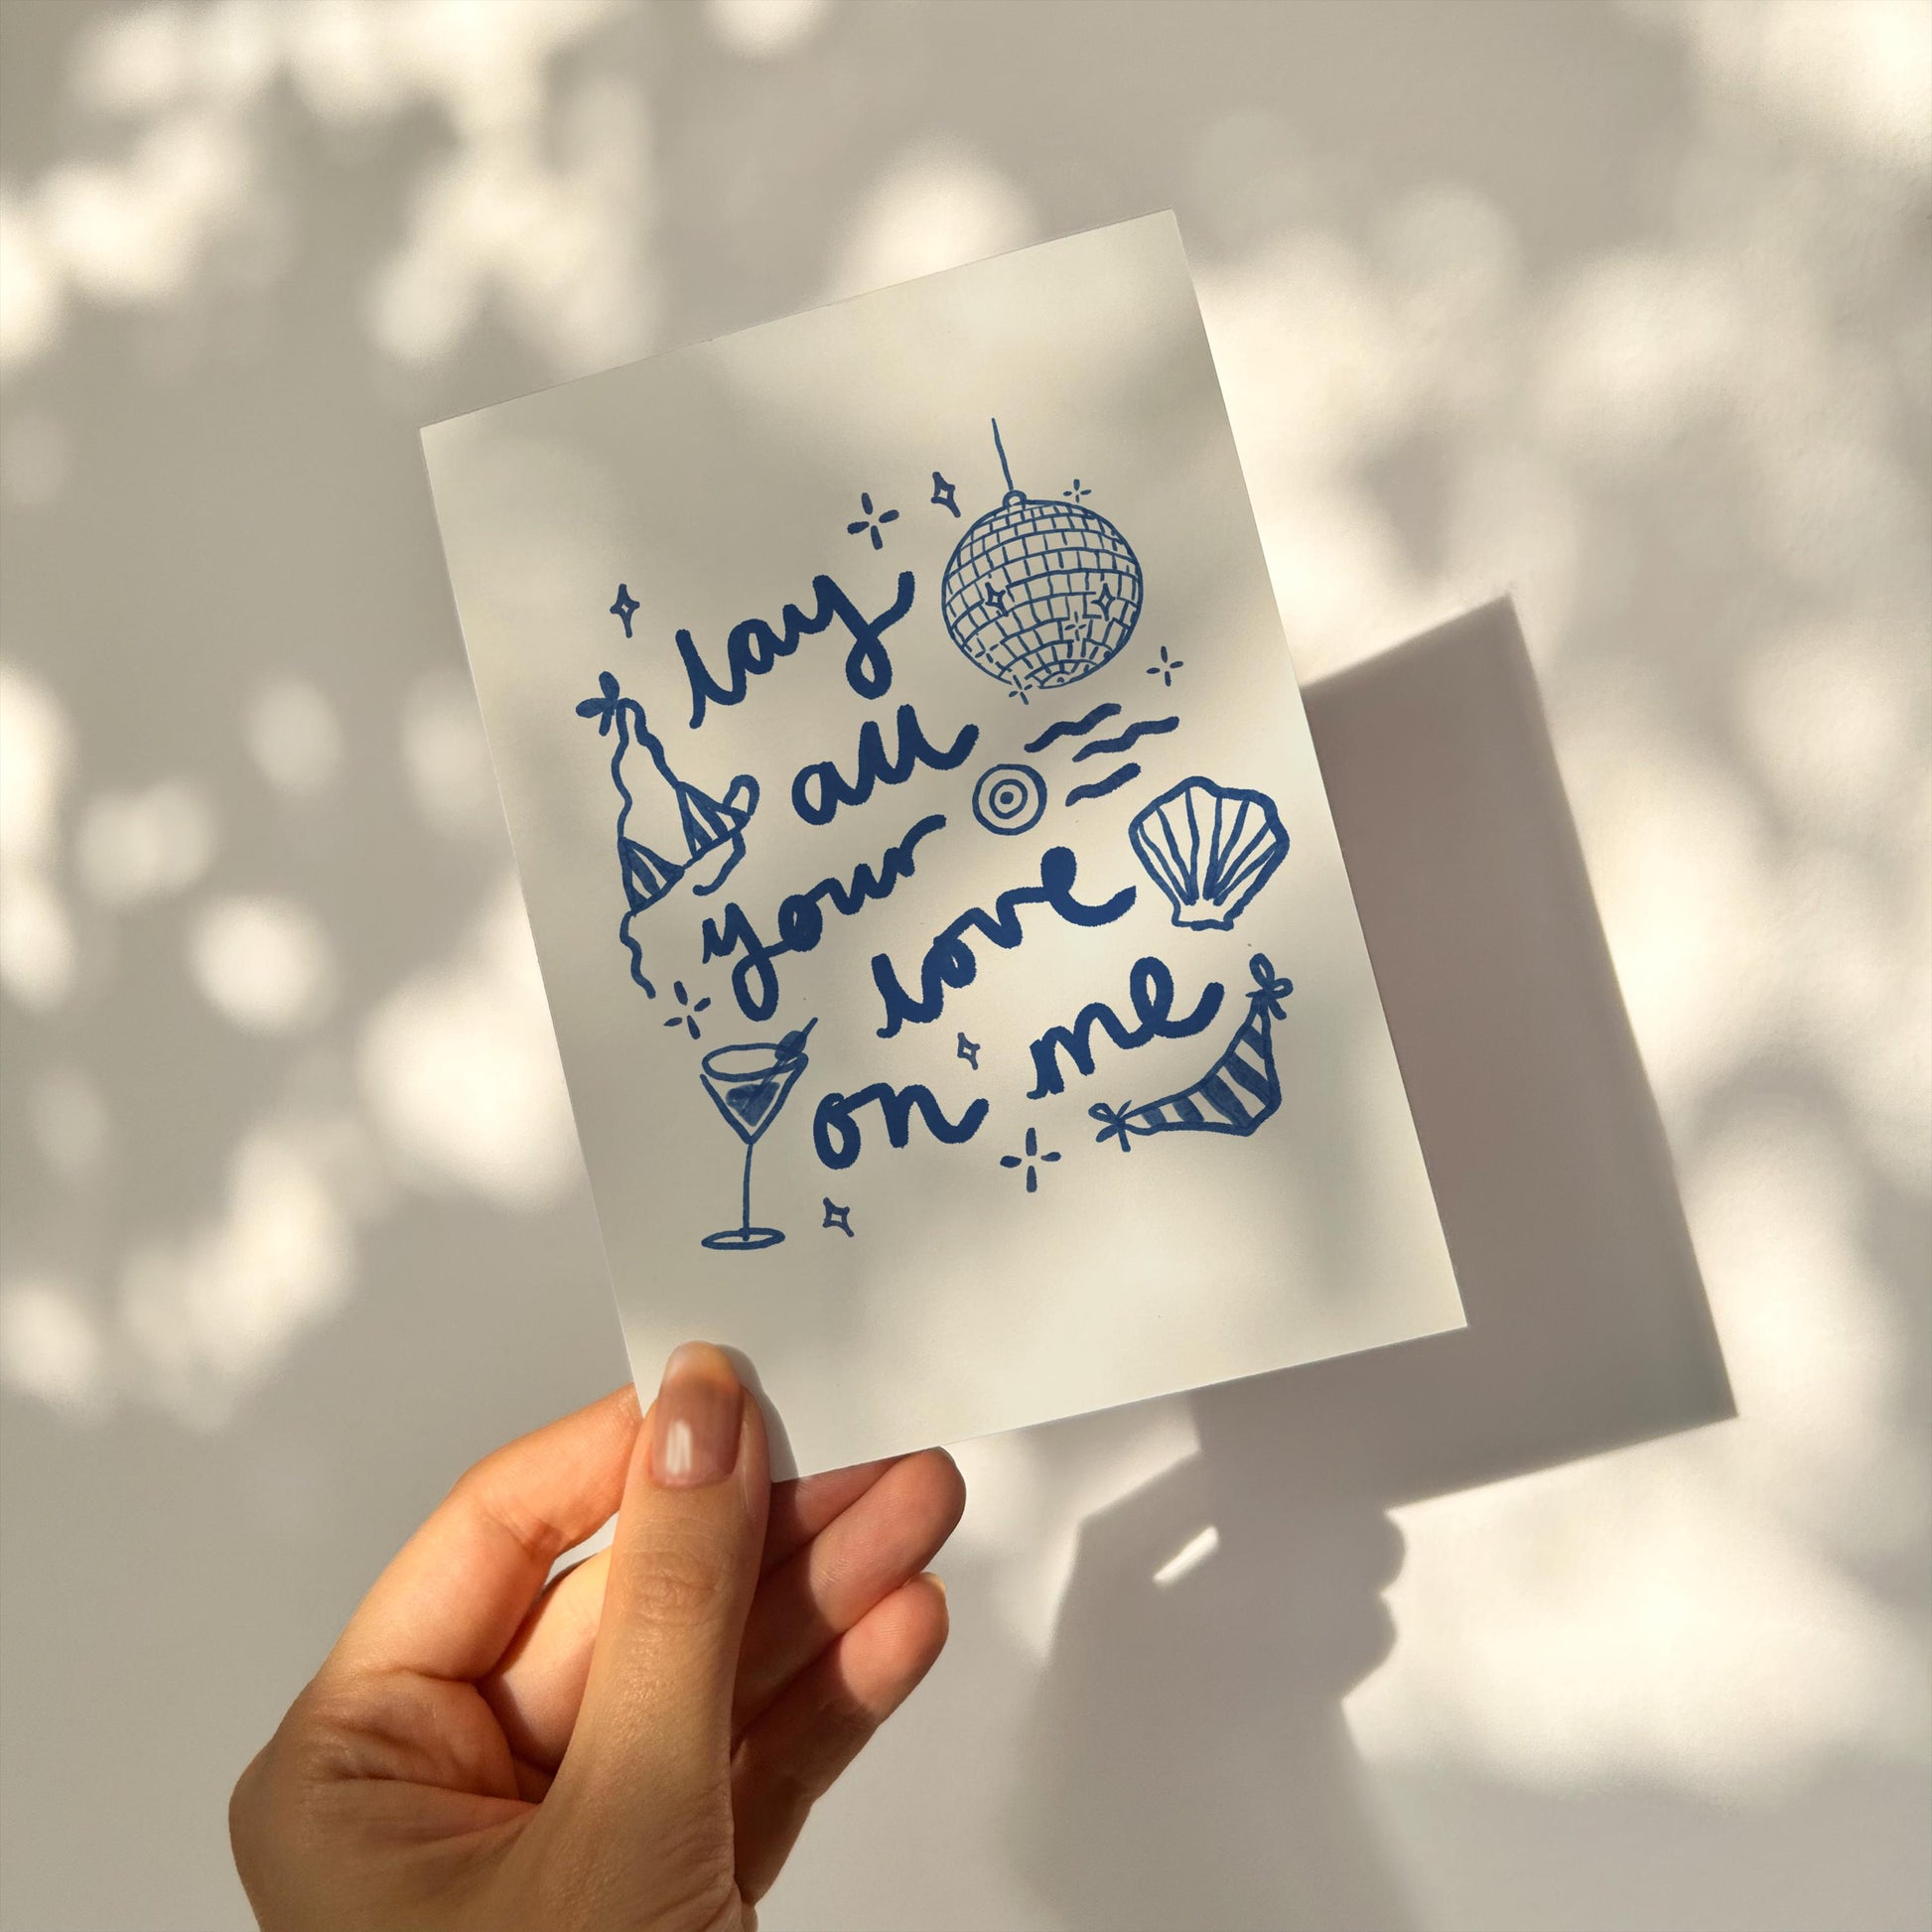 lay
all
your
love
on me